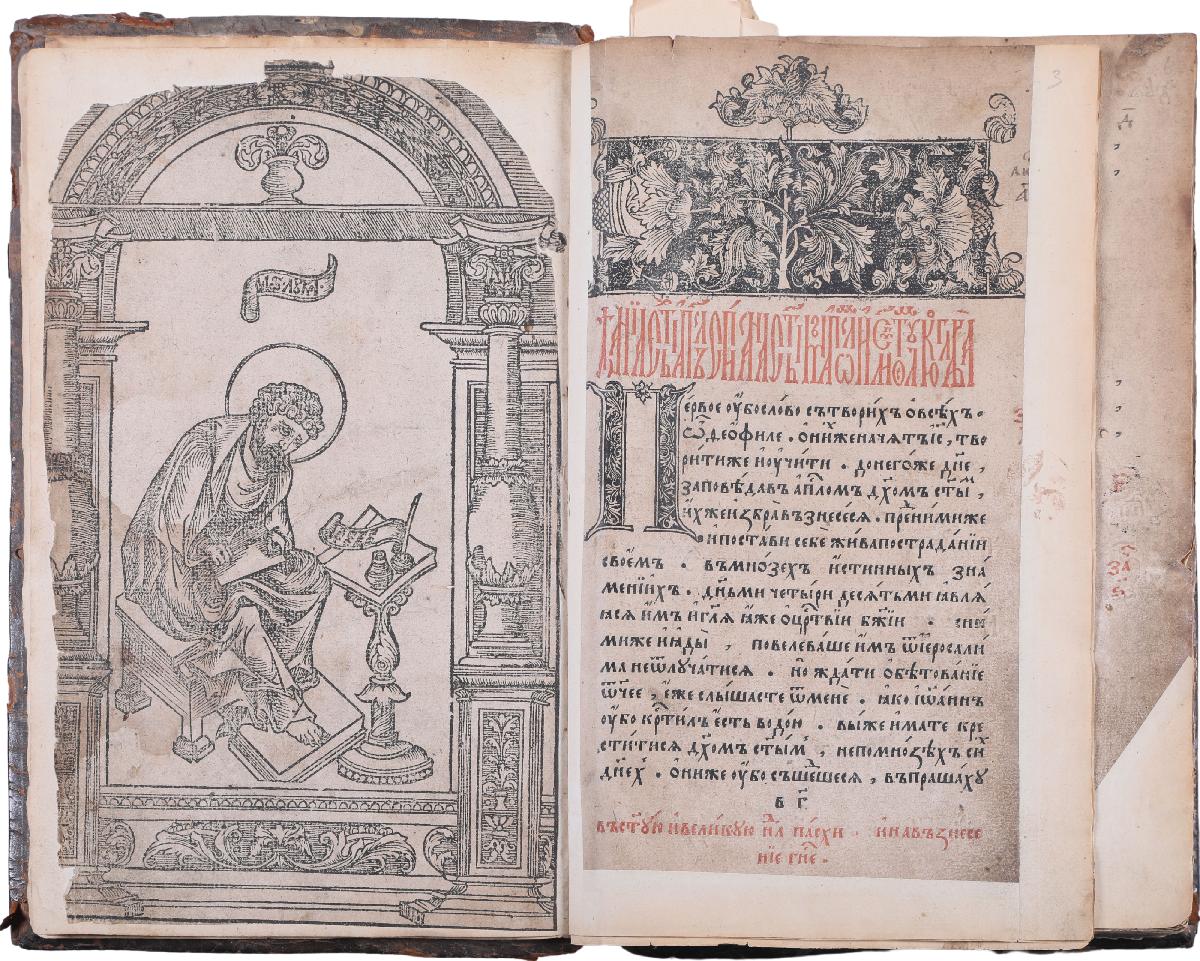 3
Д҃
Первое оу҆бо сло́во сътвори́хъ ѡ҆ всѣ́хъ .
ѽ де́ѻ҆филе . ѻ҆ ни́хже нача́тъ і҆с҃, тво
ри́ти же и҆ оу҆чи́ти . до него́же дн҃е ,
заповѣ́давъ а҆пⷭ҇ломъ дх҃омъ ст҃ы́мъ ,
и҆́хже и҆збра̀ възнесе́сѧ . пре́д ни́миже
и҆ поста́ви себѐ жи́ва по страда́нїи
свое́мъ . въ мно́зѣхъ и҆́стинныхъ зна́
ме́нїихъ . дньмѝ четы́ри десѧ́тьми ꙗ҆влѧ́
ꙗсѧ и҆̀мъ и҆ гл҃ѧ ꙗ҆́же ѡ҆ црⷭ҇твїи бж҃їи . сни́
миже и҆ ꙗ҆ды̀ , повелева́ше и҆̀мъ ѿ і҆еросали́
ма не ѿлуча́тисѧ . но жда́ти ѻ҆бѣтова́нїе
ѿч҃ее , е҆́же слы́шасте ѿ менѐ . ꙗ҆́ко і҆ѡ҆а́ннъ
оу҆́бо крⷭ҇ти́лъ є҆́сть водо́ю . вы́ же и҆́мате кре
сти́тисѧ дх҃омъ ст҃ы́мъ , не по мно́зѣхъ си́хъ
дне́хъ . ѻ҆ни́же оу҆́бо съше́дшесѧ , въпраша́хꙋ
в г҃
въ ст҃ꙋю и҆ вели́кꙋю нлⷣю па́схи . и҆ на възнесе
нїе гн҃е .
за҃